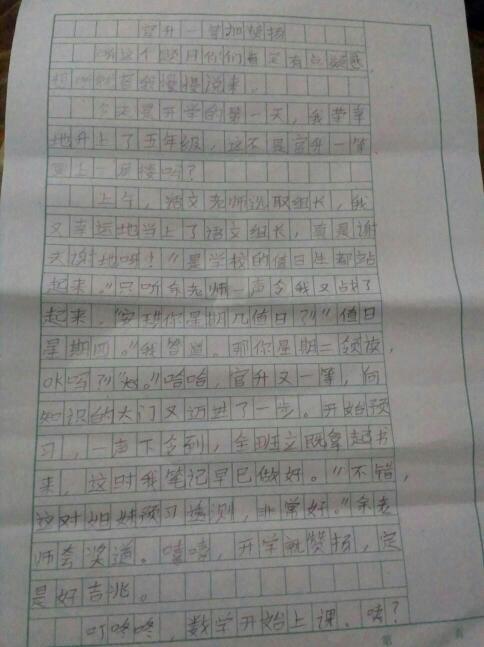 官升一等加赞扬
听这个题目你们肯定有点疑惑
想听听看我慢慢说来。
今天是开学的第一天，我荣幸
地升上了五年级，这不是官升一等
更上一层楼吗？
上午，语文老师选取组长，我
又幸运地当上了语文组长，真是谢
天谢地呀！“是学校的值日生都站
起来。”只听余老师一声令我又站了
起来，“安琪你是期几值日？”“值日
星期四。”我答道。那你星期二领读，
OK吗？”“好。”哈哈，官升又一等，向
知识的大门又迈进了一步。开始预
习，一声下令列，全班立既拿起书
来，这时我笔记早已做好。“不错，
这对姐妹预习透测，非常好。”余老
师夸奖道。嘻嘻，开学就赞扬，定
是好吉兆。
叮咚咚，数学开始上课，咦？
第 页